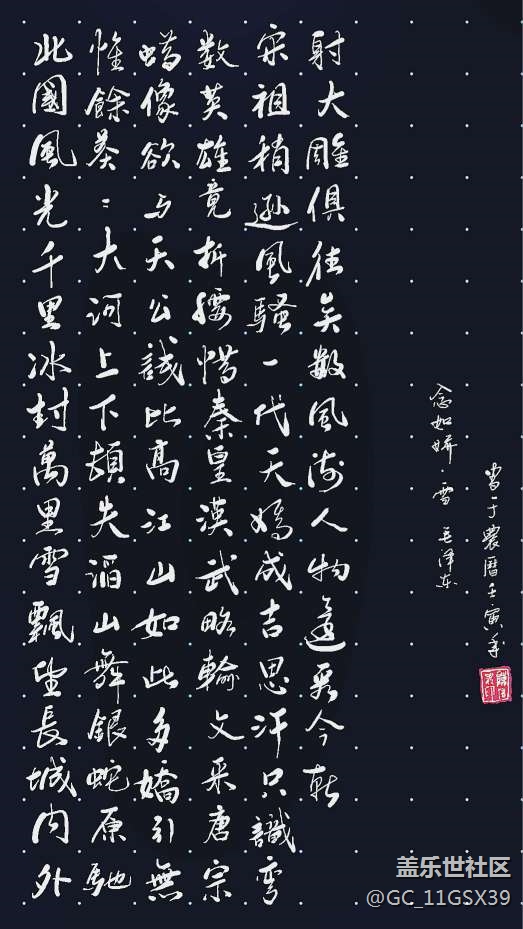 北國風光千里冰封萬里雪飄望長城内外
惟餘莽〻大河上下頓失滔山舞銀蛇原馳
蠟像欲与天公試比高江山如此多嬌引無
數英雄竟折腰惜秦皇漢武略輸文采唐宗
宋祖稍遜風騷一代天嬌成吉思汗只識彎
射大雕俱往矣數風流人物還看今朝
念如嬌·雪 毛泽东
書于農曆壬寅年
盖乐世社区
@GC_11GSX39